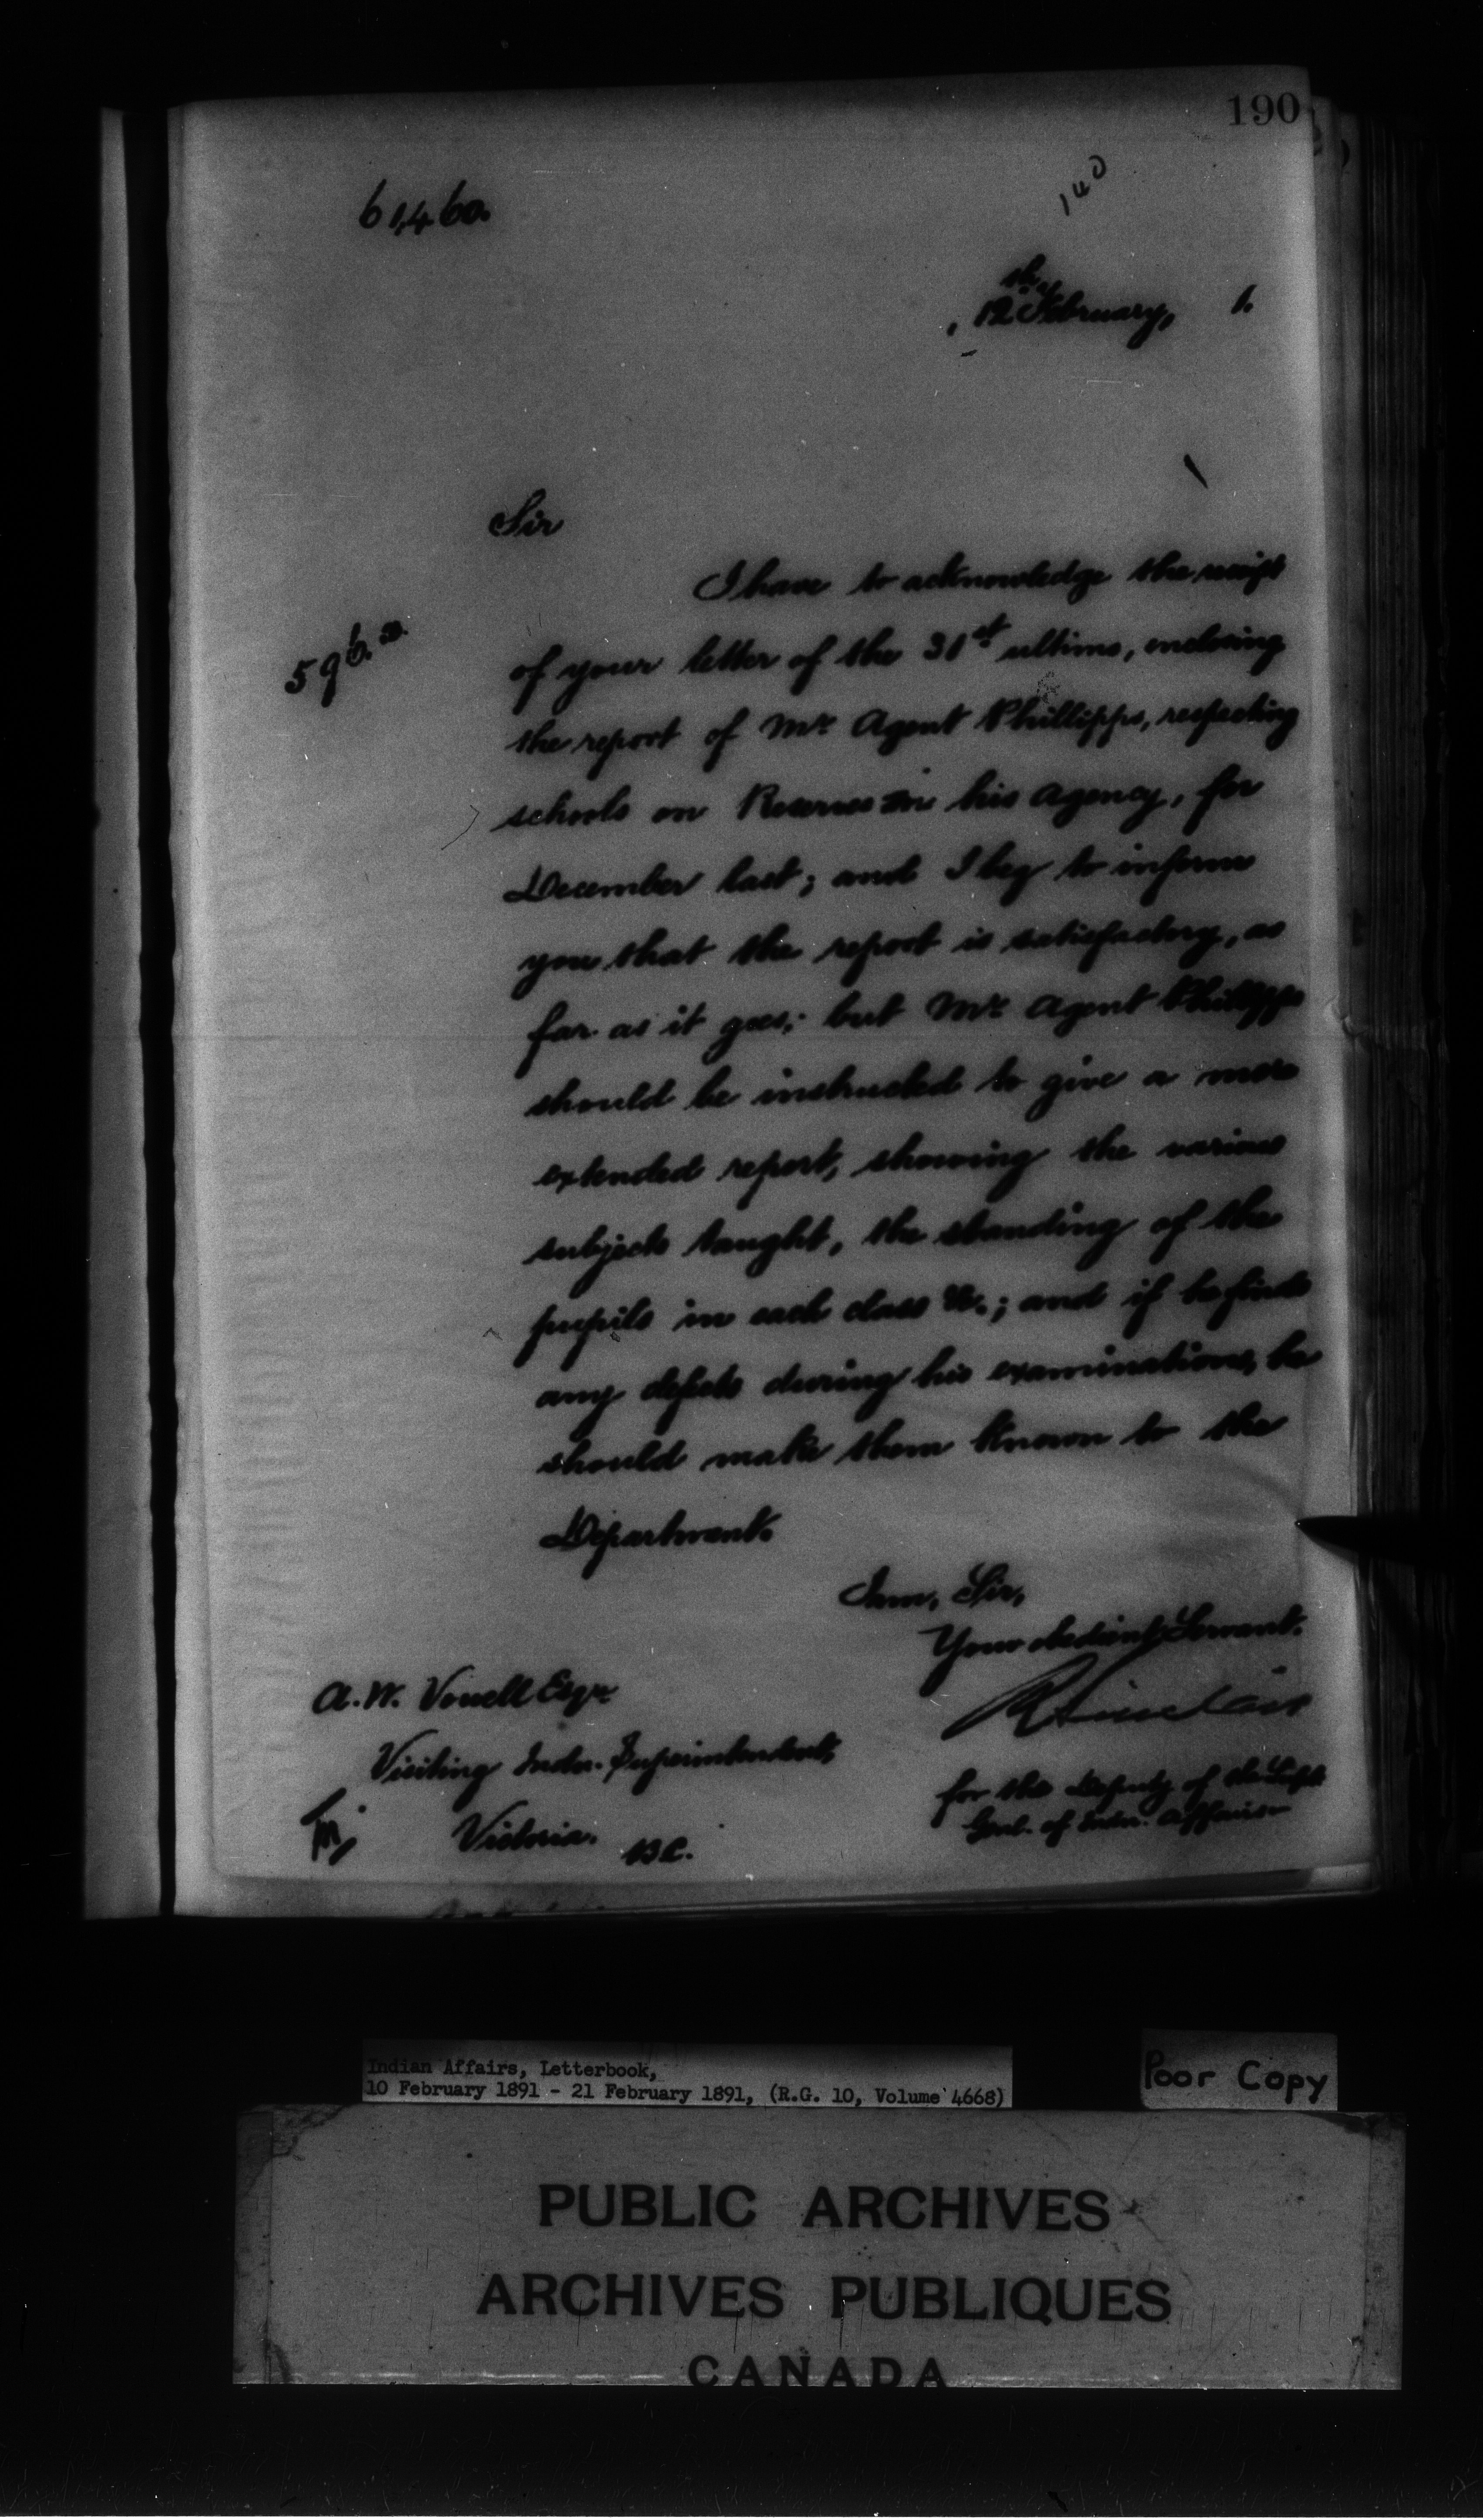 190
140
61,460.
12th February, 1.
Sir
I have to acknowledge the receipt
of your letter of the 31st ultimo, enclosing
the report of Mr Agent Phillipps, respecting
schools on Reserves in his agency, for
December last; and I beg to inform
you that the report is satisfactory, as
far as it goes; but Mr Agent Phillipps
should be instructed to give a more
extended report, showing the various
subjects taught, the standing of the
pupils in each class &c.; and if he finds
any defects during his examinations, he
should make them known to the
Department.
I am, Sir,
Your obedient Servant.
R Sinclair
for the Deputy of the Supt
Genl. of Indn. Affairs
A. W. Vowell Esqr
Visiting Indn. Superintendent,
Victoria. B.C.
Indian Affairs, Letterbook,
10 February 1891 - 21 February 1891, (R.G. 10, Volume 4668)
Poor Copy
PUBLIC ARCHIVES
ARCHIVES PUBLIQUES
CANADA